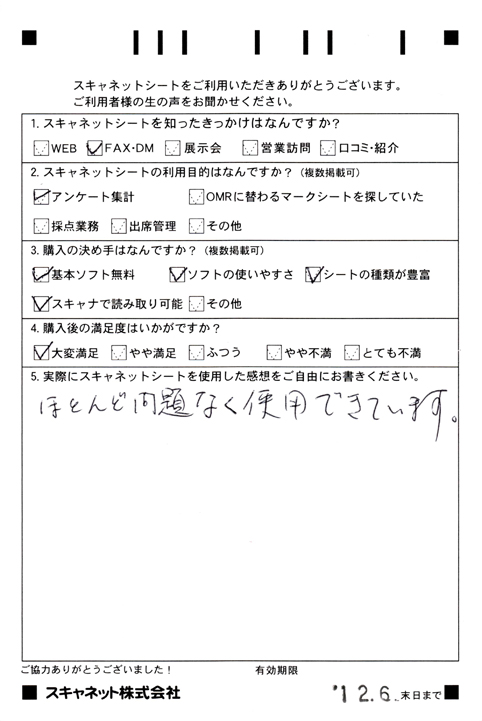 スキャネットシートをご利用いただきありがとうございます。
ご利用者様の生の声をお聞かせください。
1. スキャネットシートを知ったきっかけはなんですか？
WEB FAX・DM 展示会 営業訪問 口コミ・紹介
2. スキャネットシートの利用目的はなんですか？（複数掲載可）
アンケート集計 OMRに替わるマークシートを探していた
採点業務 出席管理 その他
3. 購入の決め手はなんですか？（複数掲載可）
基本ソフト無料 ソフトの使いやすさ シートの種類が豊富
スキャナで読み取り可能 その他
4. 購入後の満足度はいかがですか？
大変満足 やや満足 ふつう やや不満 とても不満
5. 実際にスキャネットシートを使用した感想をご自由にお書きください。
ほとんど問題なく使用できています。
ご協力ありがとうございました！ 有効期限
スキャネット株式会社 '12.6.末日まで